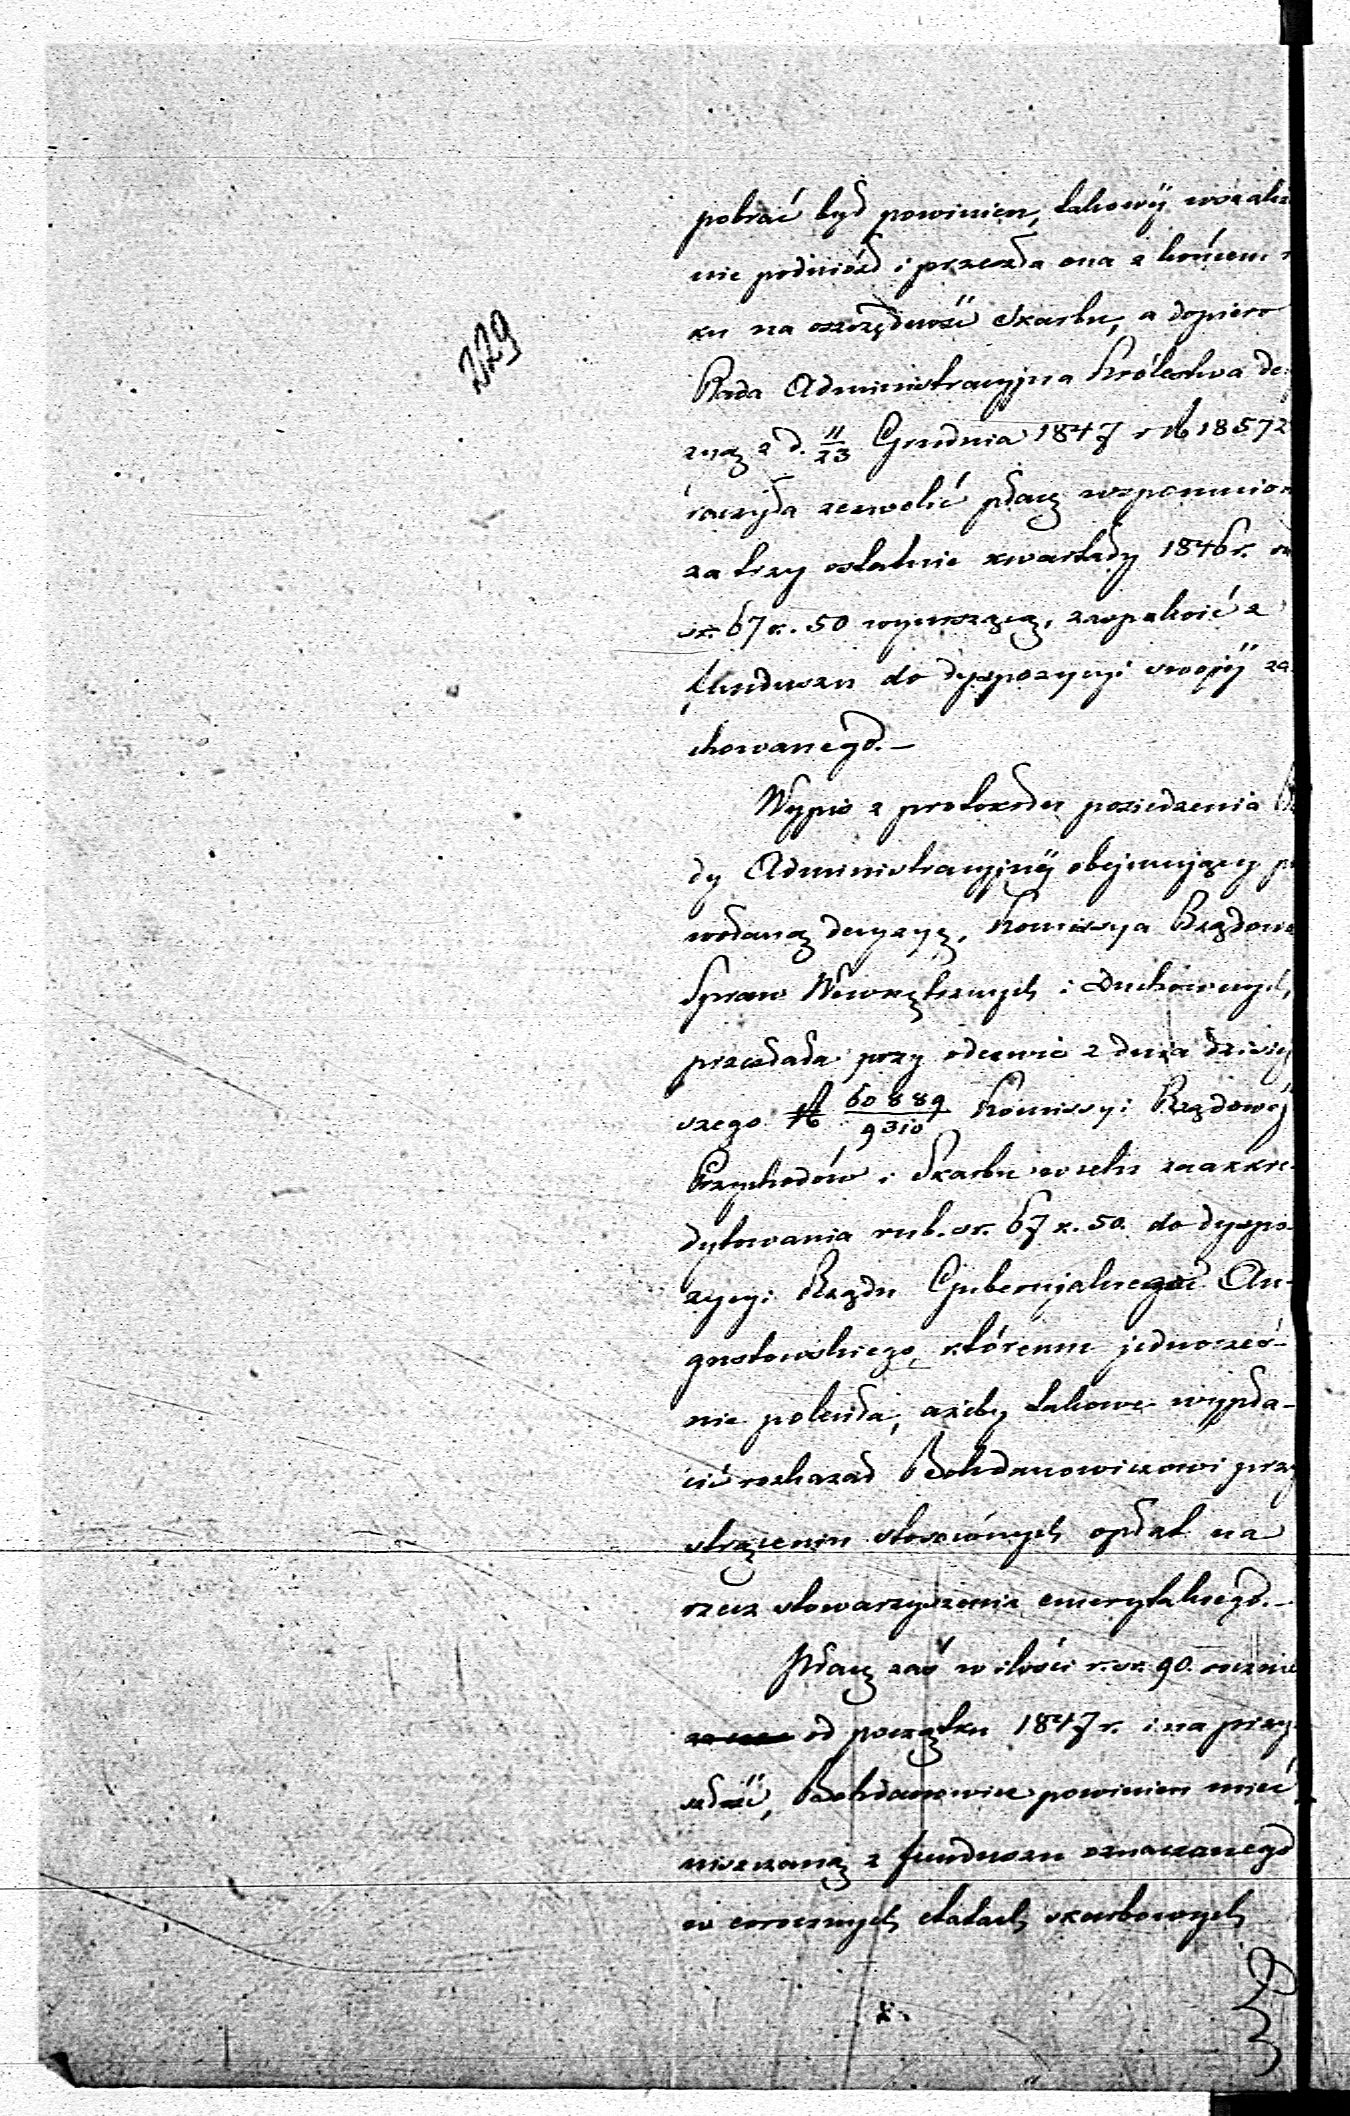 229
pobrać był powinien, takowéj wszakże
nie podniósł i przeszła ona z końcem
ku na oszczędność Skarbu, a dopiero
Rada Administracyjna Królestwa de
zyą z d. 11/23 Grudnia 1847 r № 18572
raczyła zezwolić płacę wspomnion
za trzy ostatnie kwartały 1846 r.
sr. 67 k. 50 wynoszącą, zaspokoić z
funduszu do dyspozycyi swojéj za
chowanego.—
Wypis z protokołu posiedzenia
dy Administracyjnéj obejmujący
wołaną decyzyę, Kommissya Rządowa
Spraw Wewnętrznych i Duchownych,
przesłała przy odezwie z dnia dzisiej
szego № 60889/9310 Kommissyi Rządowéj
Przychodów i Skarbu w celu zaakkre-
dytowania rub. sr. 67 k. 50. do dyspo-
zycyi Rządu Gubernjalnego Au-
gustowskiego, któremu jednocześ-
nie poleciła, ażeby takowe wypła-
cić rozkazał Bohdanowiczowi przy
strąceniu stosownych opłat na
rzecz stowarzyszenia emerytalnego.—
Płacę zaś w ilości r. sr. 90. rocznie
od początku 1847 r. i na przy-
szłość, Bohdanowicz powinien mieć
uiszczaną z funduszu oznaczanego
w corocznych etatach skarbowych